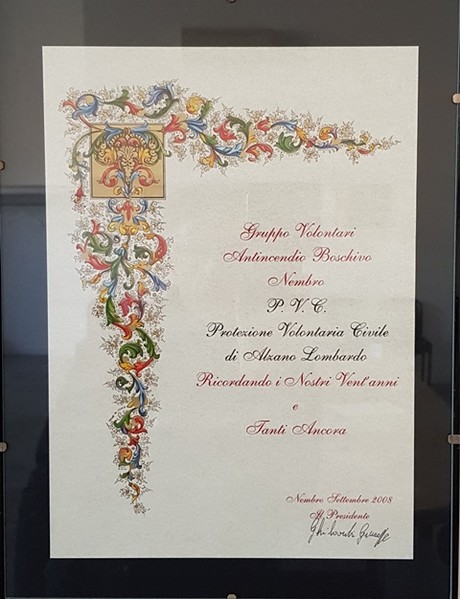 Gruppo Volontari
Antincendio Boschivo
Nembro
P. V. C.
Protezione Volontaria Civile
di Alzano Lombardo
Ricordando i Nostri Vent'anni
e
Tanti Ancora
Nembro Settembre 2008
Il Presidente